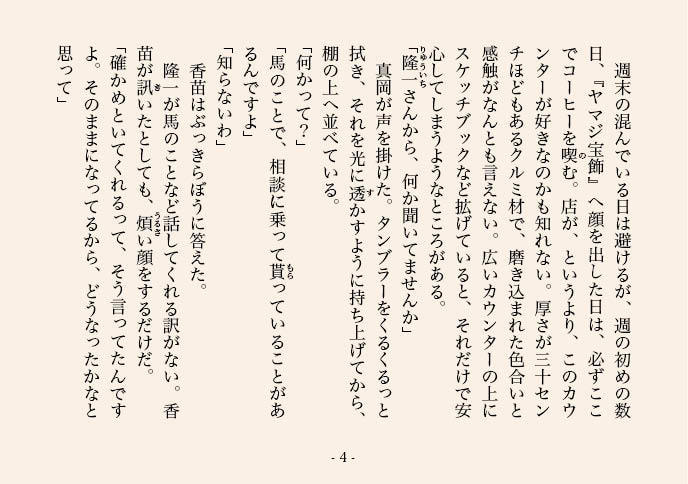 週末の混んでいる日は避けるが、週の初めの数
日、『ヤマジ宝飾』へ顔を出した日は、必ずここ
でコーヒーを喫む。店が、というより、このカウ
ンターが好きなのかも知れない。厚さが三十セン
チほどもあるクルミ材で、磨き込まれた色合いと
感触がなんとも言えない。広いカウンターの上に
スケッチブックなど拡げていると、それだけで安
心してしまうようなところがある。
「隆一さんから、何か聞いてませんか」
　真岡が声を掛けた。タンブラーをくるくるっと
拭き、それを光に透かすように持ち上げてから、
棚の上へ並べている。
「何かって？」
「馬のことで、相談に乗って貰っていることがあ
るんですよ」
「知らないわ」
　香苗はぶっきらぼうに答えた。
　隆一が馬のことなど話してくれる訳がない。香
苗が訊いたとしても、煩い顔をするだけだ。
「確かめといてくれるって、そう言ってたんです
よ。そのままになってるから、どうなったかなと
思って」
- 4 -